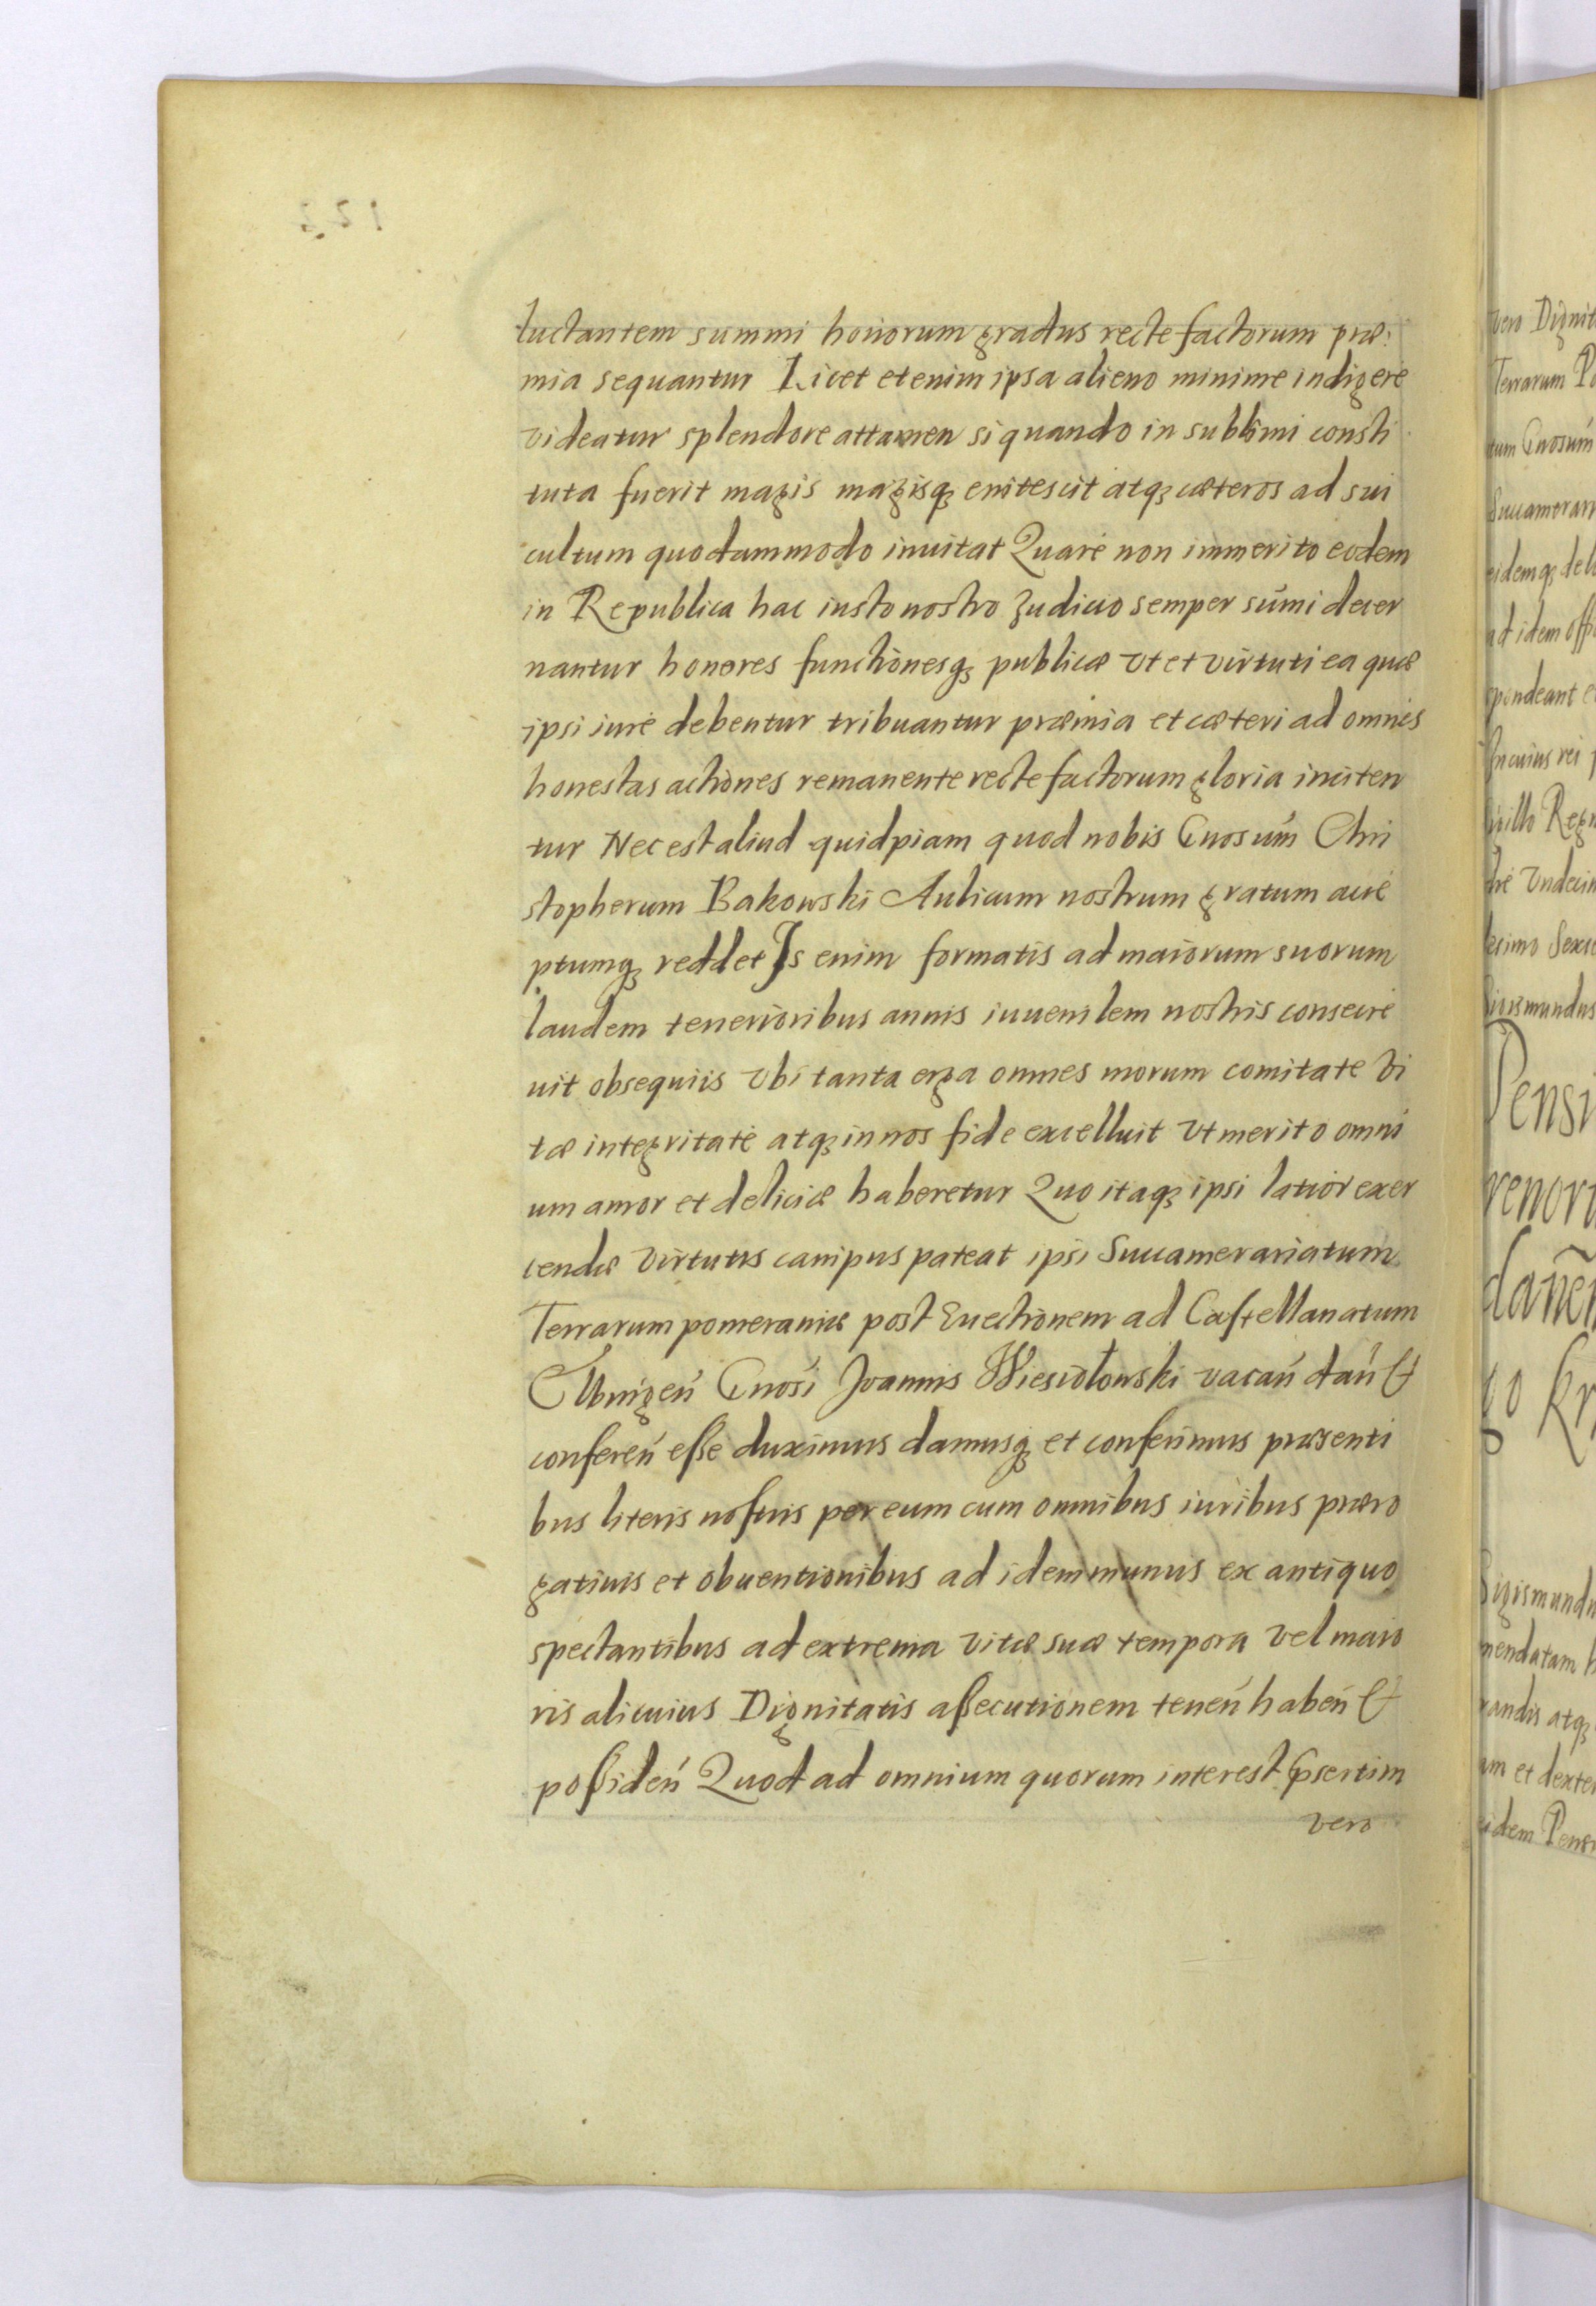 luctantem summi honorum gradus recte factorum præ:
mia sequantur Licet etenim ipsa alieno minime indigere
videatur splendore attamen si quando in sublimi consti
tuta fuerit magis magisq₃ enitescit atq₃ cæteros ad sui
cultum quodammodo inuitat Quare non immerito eodem
in Republica hac iusto nostro Judicio semper sūmi decer
nantur honores functionesq₃ publicæ vt et virtuti ea quæ
ipsi iure debentur tribuantur præmia et cæteri ad omnes
honestas actiones remanente recte factorum gloria inciten
tur Nec est aliud quidpiam quod nobis Gnosum̄ Chri
stopherum Bakowski Aulicum nostrum gratum acce
ptumq₃ reddet Is enim formatis ad maiorum suorum
laudem tenerioribus annis iuuenilem nostris consecre
uit obsequiis vbi tanta erga omnes morum comitate vi
tæ integritate atq₃ in nos fide excelluit vt merito omni
um amor et deliciæ haberetur Quo itaq₃ ipsi latior exer
cendæ virtutis campus pateat ipsi Succamerariatum
Terrarum pomeraniæ post Euectionem ad Castellanatum
Elbingen̄ Gnosi̅ Joannis Wiesiołowski vacan̄ dan̄ &
conferen̄ esse duximus damusq₃ et conferimus præsenti
bus literis nostris per eum cum omnibus iuribus præro
gatiuis et obuentionibus ad idem munus ex antiquo
spectantibus ad extrema vitæ suæ tempora vel maio
ris alicuius Dignitatis assecutionem tenen̄ haben̄ &
possiden̄ Quod ad omnium quorum interest p̄sertim
vero
vero Dignit
Terrarum Po
tum Gnosum̄
Succamerari
eidemq₃ deb
ad idem offi
spondeant e
In cuius rei p
sigillo Regn
Vndecim
Sigismundus
Pensi
dan̄en
go kr
Sigismundu
mendatam h
randis atq₃
am et dexter
eidem Pensi